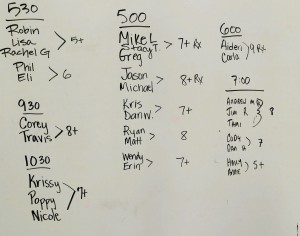 530
Robin
Lisa 5+
Rachel G
Phil
Eli 6
930
Corey
Travis 8+
1030
Krissy
Poppy 7+
Nicole
500
Mike L
Stacy T. 7+ Rx
Greg
Jason
Michael 8+ Rx
Kris
Dan W. 7+
Ryan
Matt 8
Wendy
Erin 7+
600
Alderi
Carla 9 Rx
7:00
Andrew M
Jim R 8
Tami
Cody
Dan U 7
Holly
Anne 5+